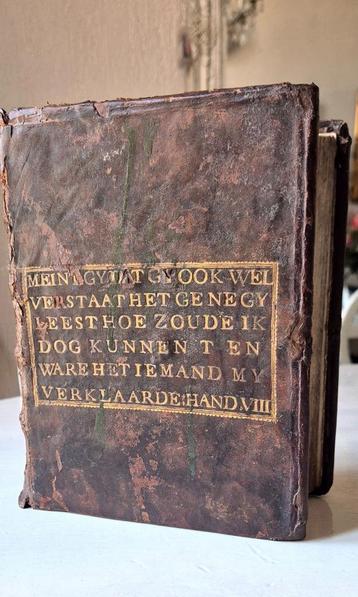 MEINT GY DAT GY OOK WEL
VERSTAAT HET GENE GY
LEEST HOE ZOUDE IK
DOG KUNNEN T EN
WARE HET IEMAND MY
VERKLAARDE: HAND. VIII